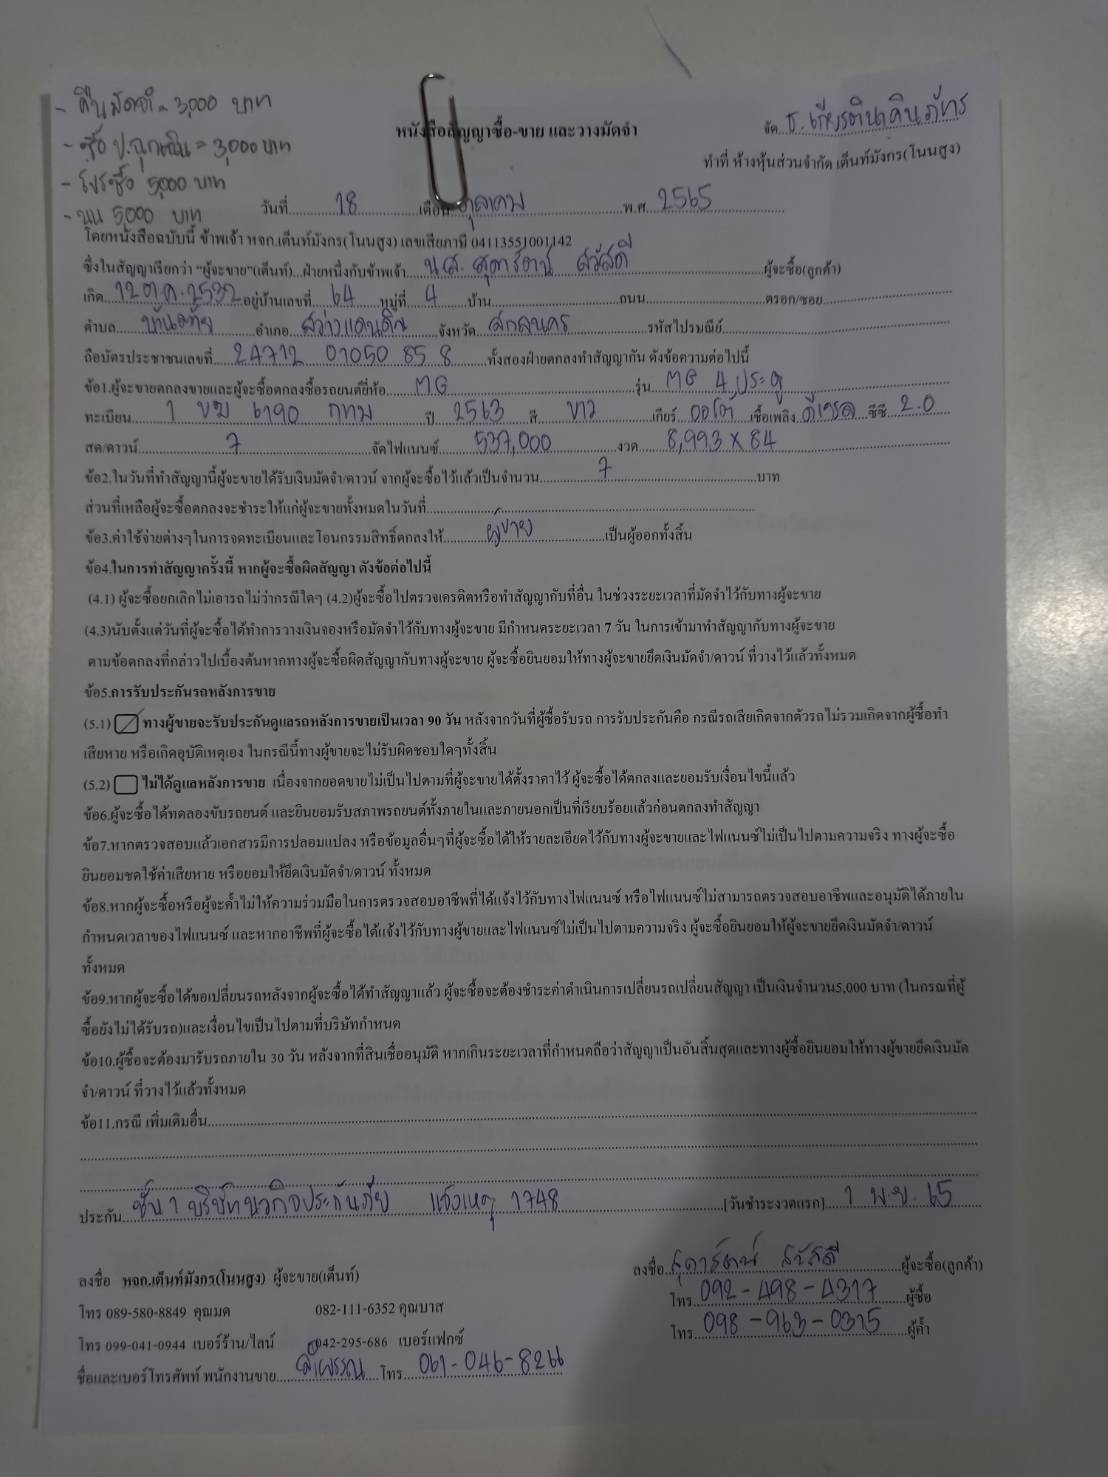 - คืนมัดจำ = 3,000 บาท
- ซื้อ ป.ฉุกเฉิน = 3,000 บาท
- โปรซื้อ 5,000 บาท
- นน 5000 บาท
หนังสือสัญญาซื้อ-ขาย และวางมัดจำ
จัด ธ.เกียรตินาคินภัทร
ทำที่ ห้างหุ้นส่วนจำกัด เต็นท์มังกร(โนนสูง)
วันที่ 18 เดือน ตุลาคม พ.ศ. 2565
โดยหนังสือฉบับนี้ ข้าพเจ้า หจก.เต็นท์มังกร(โนนสูง) เลขเสียภาษี 04113551001142
ซึ่งในสัญญาเรียกว่า "ผู้จะขาย"(เต็นท์)...ฝ่ายหนึ่งกับข้าพเจ้า น.ส. สุดารัตน์ สวัสดี ผู้จะซื้อ(ลูกค้า)
เกิด 12 ต.ค. 2532 อยู่บ้านเลขที่ 64 หมู่ที่ 4 บ้าน ถนน ตรอก/ซอย
ตำบล บ้านต้าย อำเภอ สว่างแดนดิน จังหวัด สกลนคร รหัสไปรษณีย์
ถือบัตรประชาชนเลขที่ 24712 01050 85 8 ทั้งสองฝ่ายตกลงทำสัญญากัน ดังข้อความต่อไปนี้
ข้อ1.ผู้จะขายตกลงขายและผู้จะซื้อตกลงซื้อรถยนต์ยี่ห้อ MG รุ่น MG 4 ประตู
ทะเบียน 1 ขม 6190 กทม ปี 2563 สี ขาว เกียร์ ออโต้ เชื้อเพลิง ดีเซล ซีซี 2.0
สด/ดาวน์ 7 จัดไฟแนนซ์ 537,000 งวด 8,993 x 84
ข้อ2.ในวันที่ทำสัญญานี้ผู้จะขายได้รับเงินมัดจำ/ดาวน์ จากผู้จะซื้อไว้แล้วเป็นจำนวน 7 บาท
ส่วนที่เหลือผู้จะซื้อตกลงจะชำระให้แก่ผู้จะขายทั้งหมดในวันที่
ข้อ3.ค่าใช้จ่ายต่างๆในการจดทะเบียนและโอนกรรมสิทธิ์ตกลงให้ ผู้ขาย เป็นผู้ออกทั้งสิ้น
ข้อ4.ในการทำสัญญาครั้งนี้ หากผู้จะซื้อผิดสัญญา ดังข้อต่อไปนี้
(4.1) ผู้จะซื้อยกเลิกไม่เอารถไม่ว่ากรณีใดๆ (4.2)ผู้จะซื้อไปตรวจเครดิตหรือทำสัญญากับที่อื่น ในช่วงระยะเวลาที่มัดจำไว้กับทางผู้จะขาย
(4.3)นับตั้งแต่วันที่ผู้จะซื้อได้ทำการวางเงินจองหรือมัดจำไว้กับทางผู้จะขาย มีกำหนดระยะเวลา 7 วัน ในการเข้ามาทำสัญญากับทางผู้จะขาย
ตามข้อตกลงที่กล่าวไปเบื้องต้นหากทางผู้จะซื้อผิดสัญญากับทางผู้จะขาย ผู้จะซื้อยินยอมให้ทางผู้จะขายยึดเงินมัดจำ/ดาวน์ ที่วางไว้แล้วทั้งหมด
ข้อ5.การรับประกันรถหลังการขาย
(5.1) ทางผู้ขายจะรับประกันดูแลรถหลังการขายเป็นเวลา 90 วัน หลังจากวันที่ผู้ซื้อรับรถ การรับประกันคือ กรณีรถเสียเกิดจากตัวรถไม่รวมเกิดจากผู้ซื้อทำ
เสียหาย หรือเกิดอุบัติเหตุเอง ในกรณีนี้ทางผู้ขายจะไม่รับผิดชอบใดๆทั้งสิ้น
(5.2) ไม่ได้ดูแลหลังการขาย เนื่องจากยอดขายไม่เป็นไปตามที่ผู้จะขายได้ตั้งราคาไว้ ผู้จะซื้อได้ตกลงและยอมรับเงื่อนไขนี้แล้ว
ข้อ6.ผู้จะซื้อได้ทดลองขับรถยนต์ และยินยอมรับสภาพรถยนต์ทั้งภายในและภายนอกเป็นที่เรียบร้อยแล้วก่อนตกลงทำสัญญา
ข้อ7.หากตรวจสอบแล้วเอกสารมีการปลอมแปลง หรือข้อมูลอื่นๆที่ผู้จะซื้อได้ให้รายละเอียดไว้กับทางผู้จะขายและไฟแนนซ์ไม่เป็นไปตามความจริง ทางผู้จะซื้อ
ยินยอมชดใช้ค่าเสียหาย หรือยอมให้ยึดเงินมัดจำ/ดาวน์ ทั้งหมด
ข้อ8.หากผู้จะซื้อหรือผู้จะค้ำไม่ให้ความร่วมมือในการตรวจสอบอาชีพที่ได้แจ้งไว้กับทางไฟแนนซ์ หรือไฟแนนซ์ไม่สามารถตรวจสอบอาชีพและอนุมัติได้ภายใน
กำหนดเวลาของไฟแนนซ์ และหากอาชีพที่ผู้จะซื้อได้แจ้งไว้กับทางผู้ขายและไฟแนนซ์ไม่เป็นไปตามความจริง ผู้จะซื้อยินยอมให้ผู้จะขายยึดเงินมัดจำ/ดาวน์
ทั้งหมด
ข้อ9.หากผู้จะซื้อได้ขอเปลี่ยนรถหลังจากผู้จะซื้อได้ทำสัญญาแล้ว ผู้จะซื้อจะต้องชำระค่าดำเนินการเปลี่ยนรถเปลี่ยนสัญญา เป็นเงินจำนวน5,000 บาท (ในกรณีที่ผู้
ซื้อยังไม่ได้รับรถ)และเงื่อนไขเป็นไปตามที่บริษัทกำหนด
ข้อ10.ผู้ซื้อจะต้องมารับรถภายใน 30 วัน หลังจากที่สินเชื่ออนุมัติ หากเกินระยะเวลาที่กำหนดถือว่าสัญญาเป็นอันสิ้นสุดและทางผู้ซื้อยินยอมให้ทางผู้ขายยึดเงินมัด
จำ/ดาวน์ ที่วางไว้แล้วทั้งหมด
ข้อ11.กรณี เพิ่มเติมอื่น
ประกัน ชั้น 1 บริษัทนวกิจประกันภัย แจ้งเหตุ 1748 [วันชำระงวดแรก] 1 พ.ย. 65
ลงชื่อ หจก.เต็นท์มังกร(โนนสูง) ผู้จะขาย(เต็นท์)
ลงชื่อ สุดารัตน์ สวัสดี ผู้จะซื้อ(ลูกค้า)
โทร 089-580-8849 คุณมด 082-111-6352 คุณบาส
โทร 092-498-4317 ผู้ซื้อ
โทร 099-041-0944 เบอร์ร้าน/ไลน์ 042-295-686 เบอร์แฟกซ์
โทร 098-963-0315 ผู้ค้ำ
ชื่อและเบอร์โทรศัพท์ พนักงานขาย โทร 061-046-8266